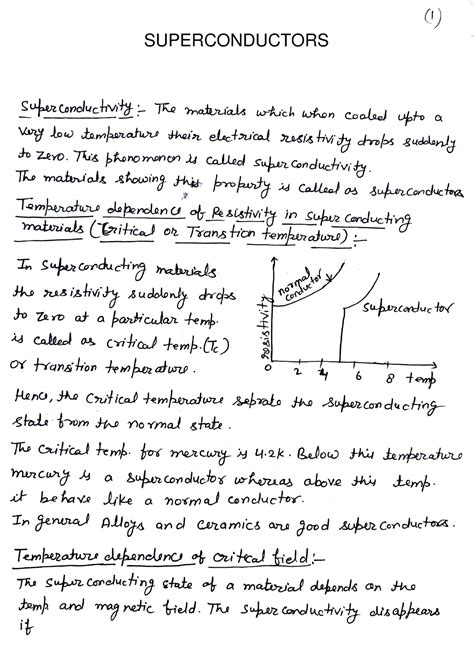 (1)
SUPERCONDUCTORS
Superconductivity :- The materials which when cooled upto a
very low temperature their electrical resistivity drops suddenly
to zero. This phenomonon is called superconductivity.
The materials showing this property is called as superconductors
Temperature dependence of Resistivity in super conducting
materials (Critical or Transtion temperature) :-
In superconducting materials
the resistivity suddonly drops
to zero at a particular temp.
is called as critical temp. (Tc)
or transition temperature.
resistivity
normal
conductor
superconductor
0 2 4 6 8 temp
Henc, the critical temperature seprate the superconducting
state from the normal state.
The critical temp. for mercury is 4.2K. Below this temperature
mercury is a superconductor whereas above this temp.
it behave like a normal conductor.
In general Alloys and ceramics are good superconductors.
Temperature dependence of critical field :-
The superconducting state of a material depends on the
temp and magnetic field. The superconductivity disappears
if